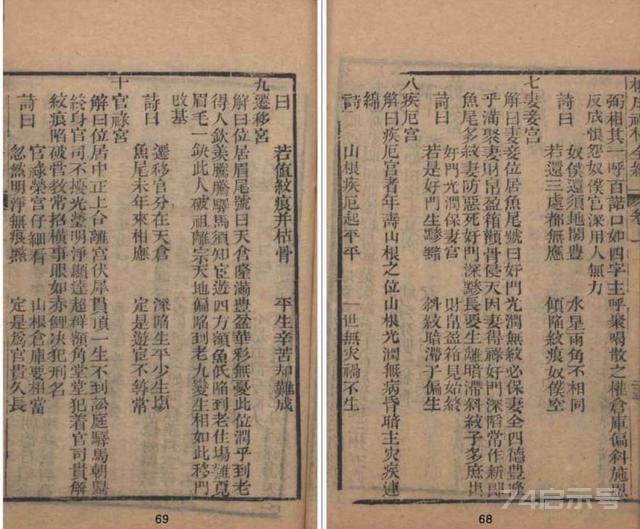 弼祖其一呼百諾口如四字主呼聚喝散之權倉庫偏斜施恩
反成恨怨奴僕宮深用人無力
詩曰 奴僕還須地閣豊 水星兩角不相同
若還三處都無應 傾陷紋痕奴僕空
七妻妾宮
解曰妻妾位居魚尾號曰奸門光潤無紋必保妻全四德豊隆
平滿娶妻財帛盈箱顴骨侵天因妻得祿奸門深陷常作新郎
魚尾多紋妻防惡死奸門黯黲自號生離暗滯斜紋子多庶出
詩曰 奸門光潤保妻宮 財帛盈箱見始終
若是奸門生黲黯 斜紋暗滯子偏生
八疾厄宮
解曰疾厄宮者年壽山根之位山根光潤無病昏暗主灾疾連
綿
詩 山根疾厄起平平 一世無災禍不生
68
曰 若值紋痕并枯骨 平生辛苦却難成
九遷移宮
解曰位居眉尾號曰天倉隆滿豊盈華彩無憂此位潤乎到老
得人欽羨騰騰驛馬須知宦遊四方額魚低陷到老住塲難覓
眉毛一缺此人破祖離宗天地偏陷到老九變生相如此移門
改基
詩曰 遷移宮分在天倉 深陷生平少生塲
魚尾未年來相應 定是遊宦不等常
十官祿宮
解曰位居中正上合離宮伏犀貫頂一生不到訟庭驛馬朝歸
終身官司不擾光瑩明淨顯達超群額角堂堂犯着官司貴解
紋痕陷破當教常招橫事眼如赤鯉决犯刑名
詩曰 官祿榮宮仔細看 山根倉庫要相當
忽然明淨無痕㸃 定是爲官貴久長
69
74启示号